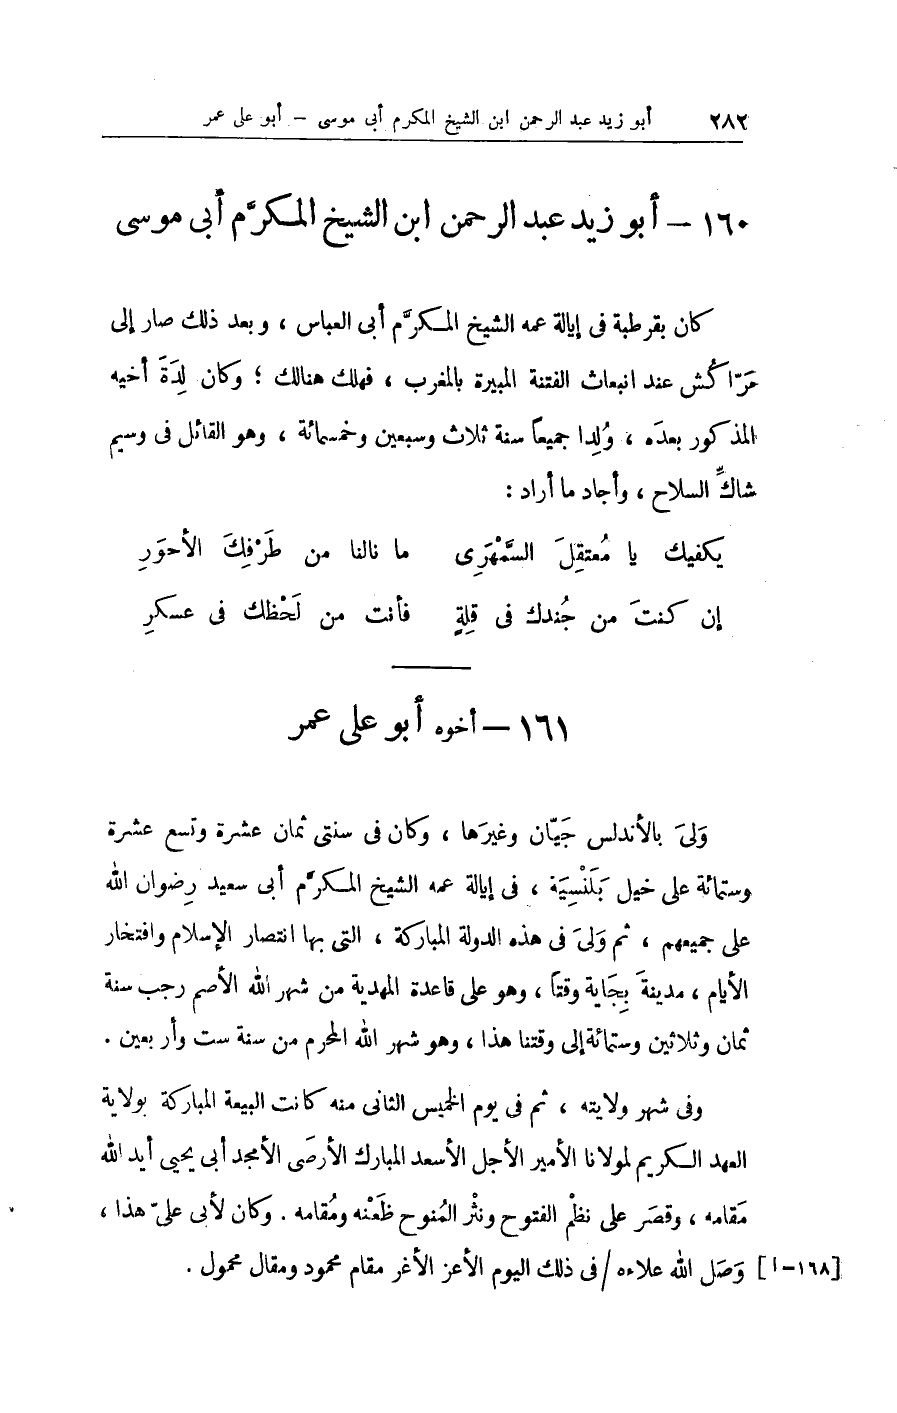 ٢٨٢ أبو زيد عبد الرحمن ابن الشيخ المكرم أبى موسى – أبو على عمر
١٦٠ – أبو زيد عبد الرحمن ابن الشيخ المكرَّم أبى موسى
كان بقرطبة فى إيالة عمه الشيخ المكرَّم أبى العباس ، وبعد ذلك صار إلى
مَرّاكُش عند انبعاث الفتنة المبيرة بالمغرب ، فهلك هنالك ؛ وكان لِدَةَ أخيه
المذكور بعدَه ، وُلِدا جميعاً سنة ثلاث وسبعين وخمسمائة ، وهو القائل فى وسيم
شاكِّ السلاح ، وأجاد ما أراد :
يكفيك يا مُعتقِلَ السَّمْهَرِى ما نالنا من طَرْفِكَ الأحوَرِ
إن كنتَ من جُندك فى قِلةٍ فأنت من لَحْظك فى عسكرِ
١٦١ – أخوه أبو على عمر
وَلىَ بالأندلس جَيّان وغيرَها ، وكان فى سنتى ثمان عشرة وتسع عشرة
وستمائة على خيل بَلَنْسِيَة ، فى إيالة عمه الشيخ المكرَّم أبى سعيد رِضوان الله
على جميعهم ، ثم وَلىَ فى هذه الدولة المباركة ، التى بها انتصار الإسلام وافتخار
الأيام ، مدينةَ بِجَاية وقتاً ، وهو على قاعدة المهدية من شهر الله الأصم رجب سنة
ثمان وثلاثين وستمائة إلى وقتنا هذا ، وهو شهر الله المحرم من سنة ست وأربعين .
وفى شهر ولايته ، ثم فى يوم الخميس الثانى منه كانت البيعة المباركة بولاية
العهد الكريم لمولانا الأمير الأجل الأسعد المبارك الأرضَى الأمجد أبى يحيى أيد الله
مَقامه ، وقصَر على نظْم الفتوح ونثْر المُنوح ظَعْنه ومُقامه . وكان لأبى علىّ هذا ،
[١٦٨-ا] وَصَل الله علاءه / فى ذلك اليوم الأعز الأغر مقام محمود ومقال محمول .